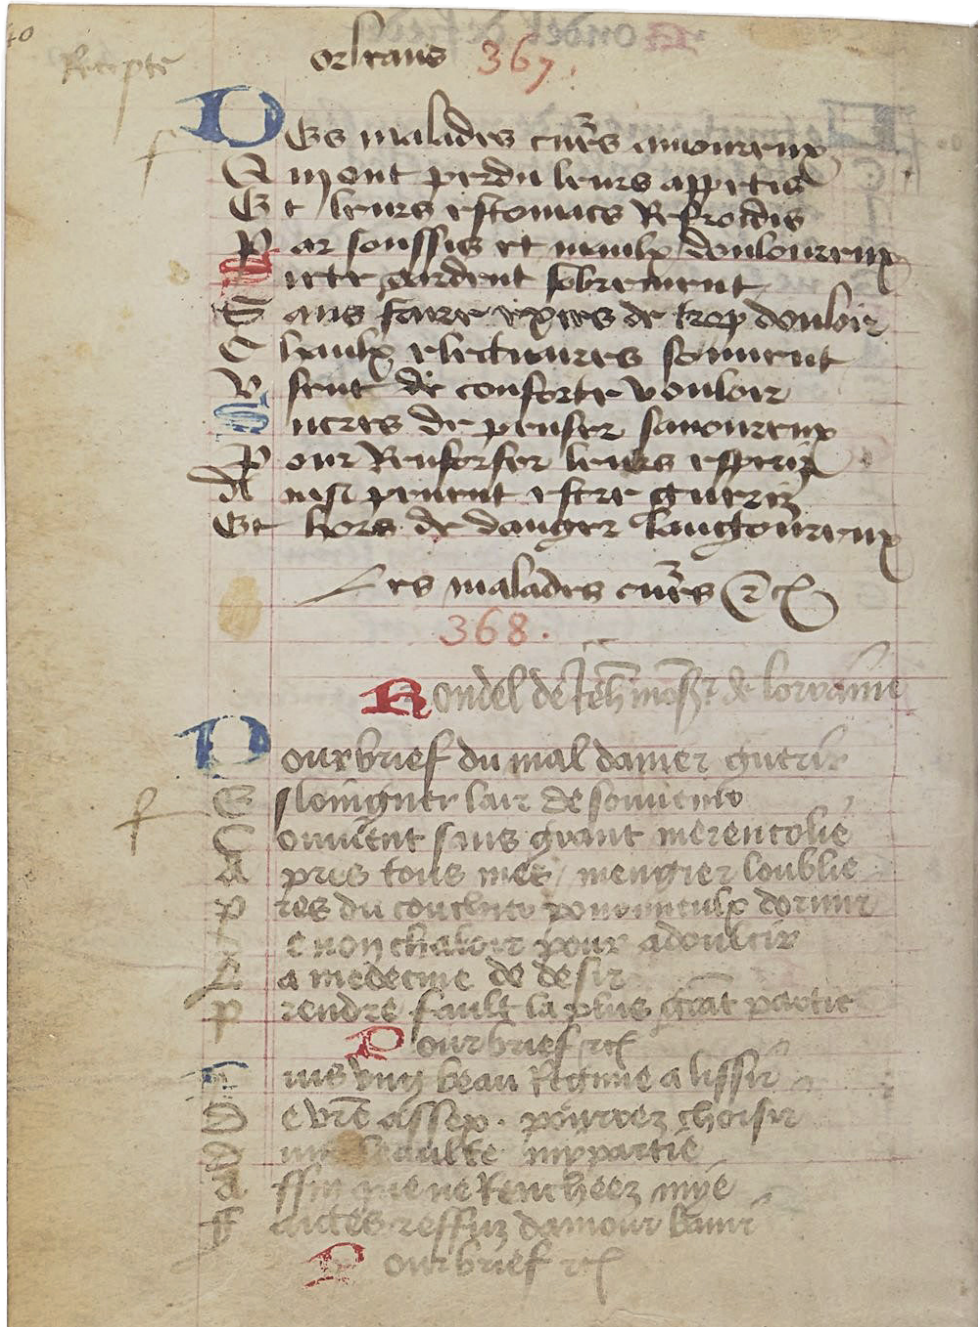 Recepte
Orleans 367.
Des malades cueurs amoureux
Qui ont perdu leurs appetis
Et leurs estomacs Refroidis
Par soussis et maulx douloureux
Diete gardent sobrement
Sans faire exces de trop douloir
Chaulx electuaires souvent
Usent de conforte vouloir
Sucres de penser savoureux
Pour Renforser leurs esperiz
Ainsi peuent estre gueriz
Et hors de danger langoureux
Les malades cueurs etc
368.
Rondel de Jehan monsr de lorraine
Pour brief du mal damer guerir
Eslongner lair de souvenir
Comment sans grant merencolie
Apres tous mes mengier loublie
Pres du couchier pour mieulx dormir
De nonchaloir pour adoulcir
La medecine de desir
Prendre fault la plus grant partie
Pour brief etc
Puis ung beau Regime a lissir
De vre assez pourrez choisir
beaulte my partie
Affin que ne Rencheez mye
Faictes reffuz damour banir
Pour brief etc